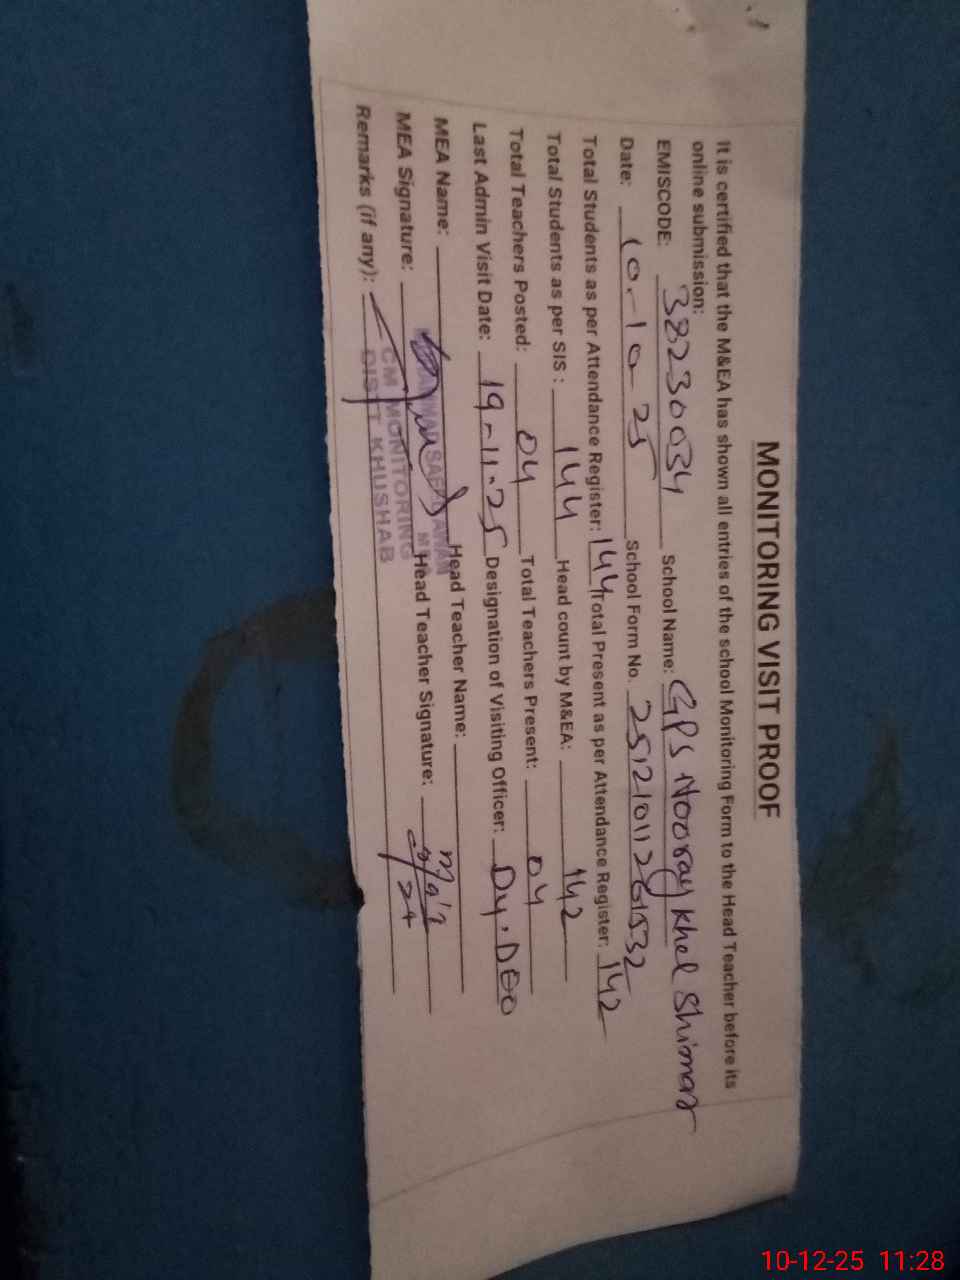 MONITORING VISIT PROOF
It is certified that the M&EA has shown all entries of the school Monitoring Form to the Head Teacher before its
online submission:
EMISCODE: 38230034 School Name: GPS Nooray Khel Shimaz
Date: 10-10-25 School Form No. 25121011261532
Total Students as per Attendance Register: 144 Total Present as per Attendance Register: 142
Total Students as per SIS : 144 Head count by M&EA: 142
Total Teachers Posted: 04 Total Teachers Present: 04
Last Admin Visit Date: 19-11-25 Designation of Visiting Officer: Dy.DEO
MEA Name: Head Teacher Name:
MEA Signature: Head Teacher Signature:
Remarks (if any):
CM MONITORING
DISTT KHUSHAB
10-12-25 11:28